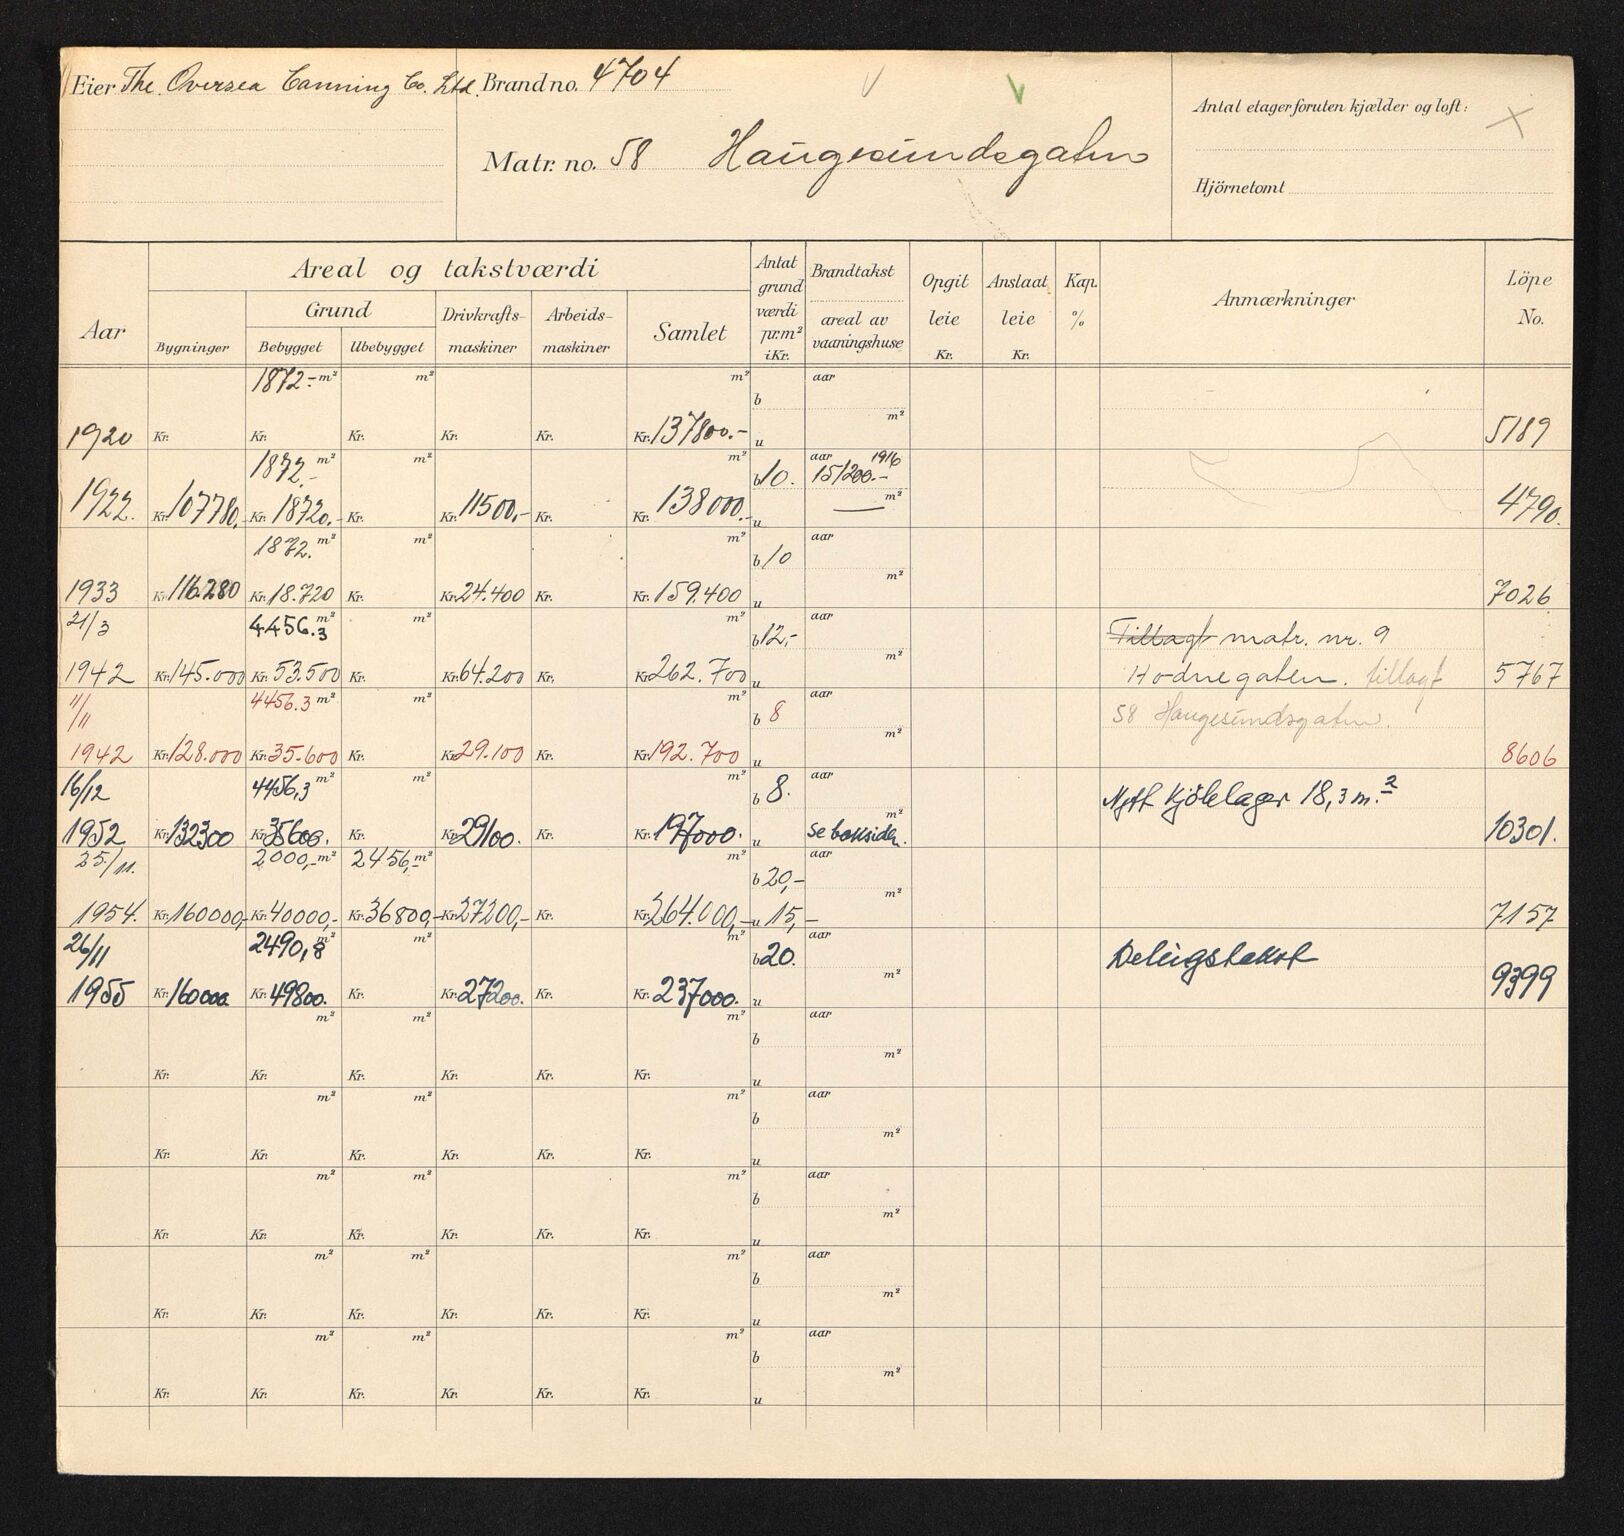 Eier The Oversea Canning Co. Ltd. Brand no. 4704
Antal etager foruten kjælder og loft:
Matr. no. 58 Haugesundsgaten
Hjörnetomt
Areal og takstværdi
Aar
Grund
Bygninger Bebygget Ubebygget
Drivkrafts-
maskiner
Arbeids-
maskiner
Samlet
Antat
grund
værdi
pr. m²
i Kr.
Brandtakst
areal av
vaaningshuse
Opgit
leie
Kr.
Anslaat
leie
Kr.
Kap.
%
Anmærkninger
Löpe
No.
1872.- m² m² m² aar
b
m²
1920 Kr. Kr. Kr. Kr. Kr. Kr. 137800.- u 5189
1872.- m² m² m² b 10. aar 1916
151200.-
m²
1922. Kr. 107780,- Kr. 18720.- Kr. Kr. 11500,- Kr. Kr. 138000.- u 4790.
1872. m² m² m² b 10 aar
m²
1933 Kr. 116.280 Kr. 18.720 Kr. Kr. 24.400 Kr. Kr. 159.400 u 7026
21/3 4456.3 m² m² m² b 12,- aar Tillagt matr. nr. 9
m²
1942 Kr. 145.000 Kr. 53.500 Kr. Kr. 64.200 Kr. Kr. 262.700 u Hodnegaten. tillagt 5767
11/11 4456.3 m² m² m² b 8 aar 58 Haugesundsgaten.
m²
1942 Kr. 128.000 Kr. 35.600 Kr. Kr. 29.100 Kr. Kr. 192.700 u 8606
16/12 4456,3 m² m² m² b 8. aar Nytt kjölelager 18,3 m.²
m²
1952 Kr. 132300 Kr. 35600. Kr. Kr. 29100. Kr. Kr. 197000. u se baksiden. 10301.
25/11. 2000,- m² 2456,- m² m² b 20,- aar
m²
1954. Kr. 160000,- Kr. 40000,- Kr. 36800,- Kr. 27200,- Kr. Kr. 264.000,- u 15,- 7157
26/11 2490,8 m² m² m² b 20. aar Delingstakst
m²
1955 Kr. 160000. Kr. 49800. Kr. Kr. 27200. Kr. Kr. 237000. u 9399
m² m² m² aar
b
m²
Kr. Kr. Kr. Kr. Kr. Kr. u
m² m² m² aar
b
m²
Kr. Kr. Kr. Kr. Kr. Kr. u
m² m² m² aar
b
m²
Kr. Kr. Kr. Kr. Kr. Kr. u
m² m² m² aar
b
m²
Kr. Kr. Kr. Kr. Kr. Kr. u
m² m² m² aar
b
m²
Kr. Kr. Kr. Kr. Kr. Kr. u